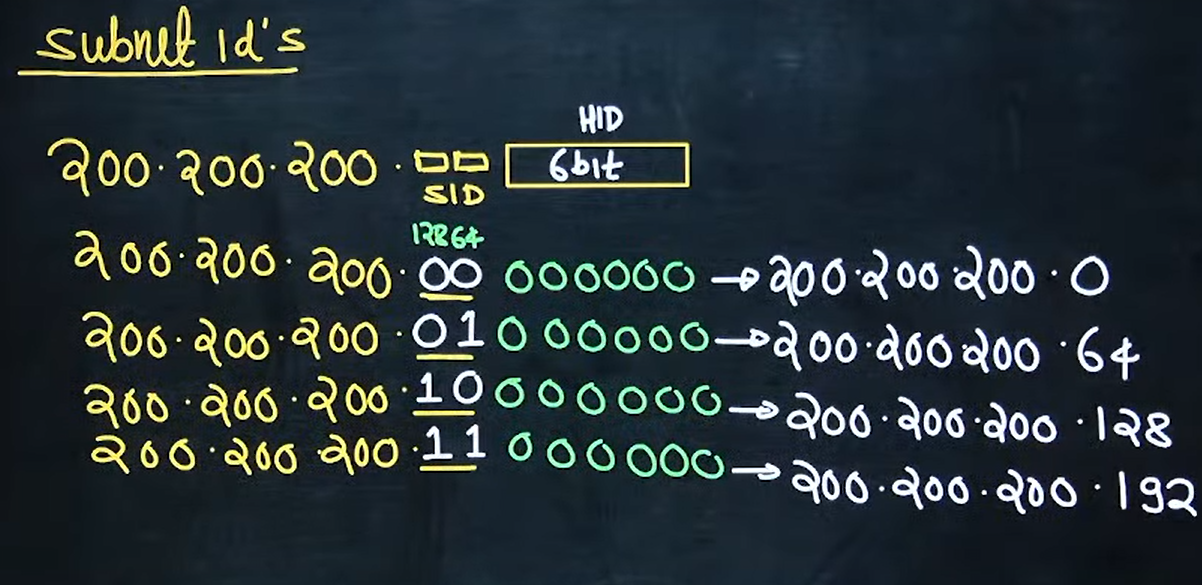 subnet id's
HID
200.200.200. 6bit
SID
128 64
200.200.200.00 000000 → 200.200.200.0
200.200.200.01 000000 → 200.200.200.64
200.200.200.10 000000 → 200.200.200.128
200.200.200.11 000000 → 200.200.200.192